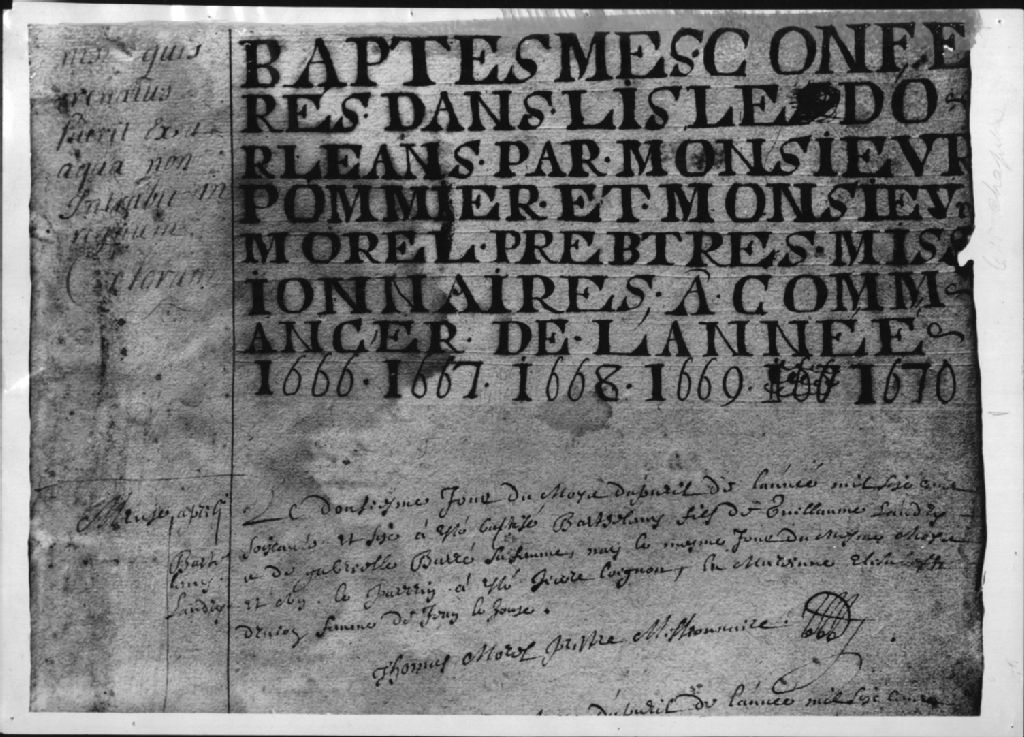 nisi quis
renatus
fuerit ex
aqua non
Intrabit in
regnum
Cœlorum
BAPTESMES CONFE
RES DANS LISLE DO
RLEANS PAR MONSIEVR
POMMIER ET MONSIEV
MOREL PREBTRES MISS
IONNAIRES, A COMM
ANCER DE LANNÉE
1666 1667 1668 1669 1670
Mense, aprili
Bart
lemy
Landry
Le Jour du Moys de lannée mil sixc
soixante et six à esté baptisé Barthelemy fils de Guillaume Landry
de gabrielle Barré sa femme, nay le mesme Jour du Mesme Moys
et le Parrin à esté Pierre Loignon, la Marenne
femme de
Thomas Morel prestre Missionnaire
de lannée mil sixc